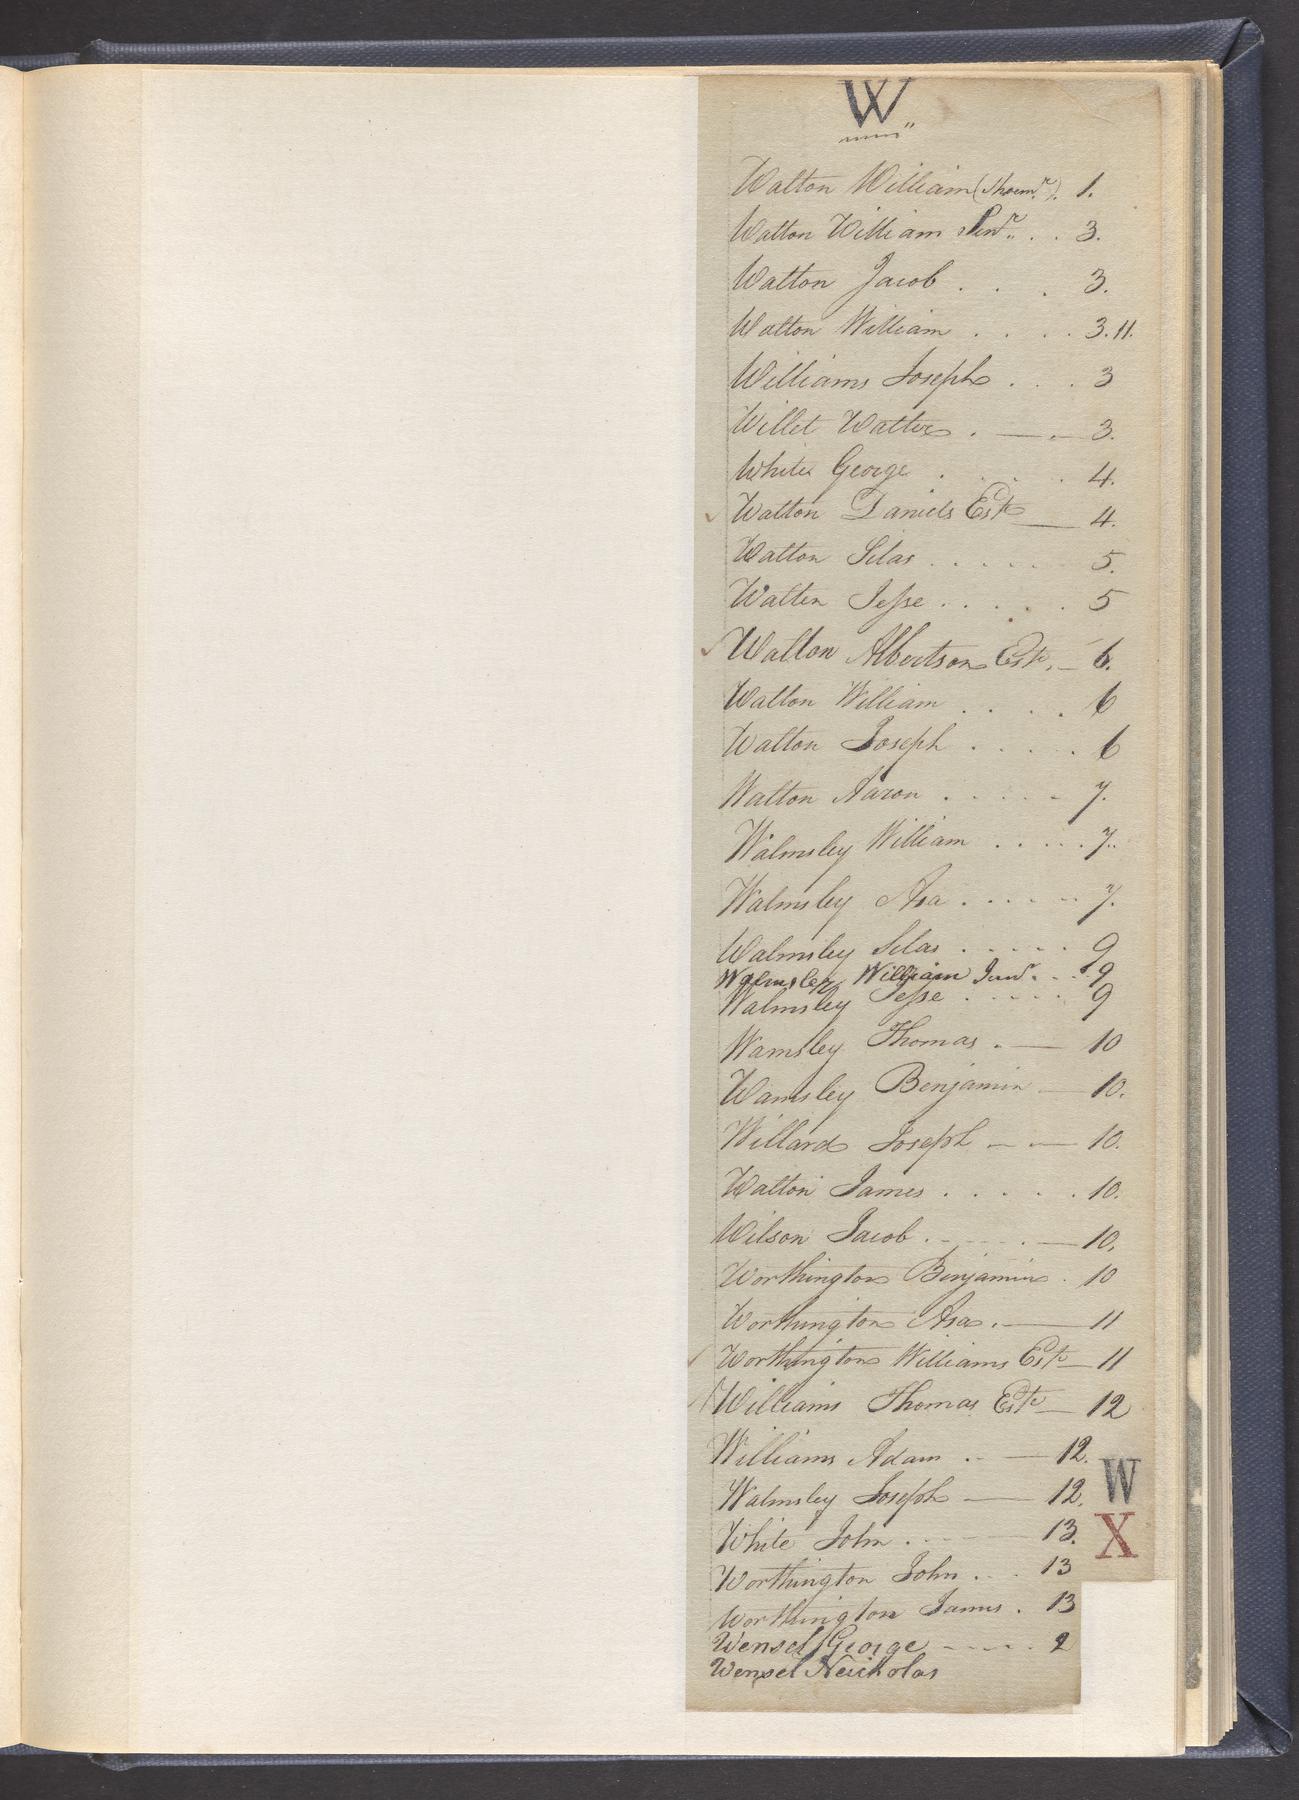 W
Walton William (Shoemr.). 1.
Walton William Senr. . . 3.
Walton Jacob . . . 3.
Walton William . . . . 3.11.
Williams Joseph . . . 3
Willet Walter . — . — 3.
White George . . . . 4.
Walton Daniels Este — 4.
Walton Silas . . . . . 5.
Walten Jesse . . . . . 5
Walton Albertson Este. — 6.
Walton William . . . . 6
Walton Joseph . . . . 6
Walton Aaron . . . . - 7.
Walmsley William . . . . . 7..
Walmsley Asa . . . . . 7.
Walmsley Silas . . . . . 9
Walmsley William Junr. . . 9
Walmsley Jesse . . . . . 9
Wamsley Thomas . — 10
Wamsley Benjamin — 10.
Willard Joseph — — 10.
Walton James . . . . . 10.
Wilson Jacob . - . . — 10.
Worthington Benjamin . 10
Worthington Asa . — 11
Worthington Williams Este — 11
Williams Thomas Este — 12
Williams Adam . . — 12.
Walmsley Joseph — 12.
W
White John . . — 13.
X
Worthington John . . . 13
Worthington James . 13
Wensel George - - - . . 2
Wensel Neicholas